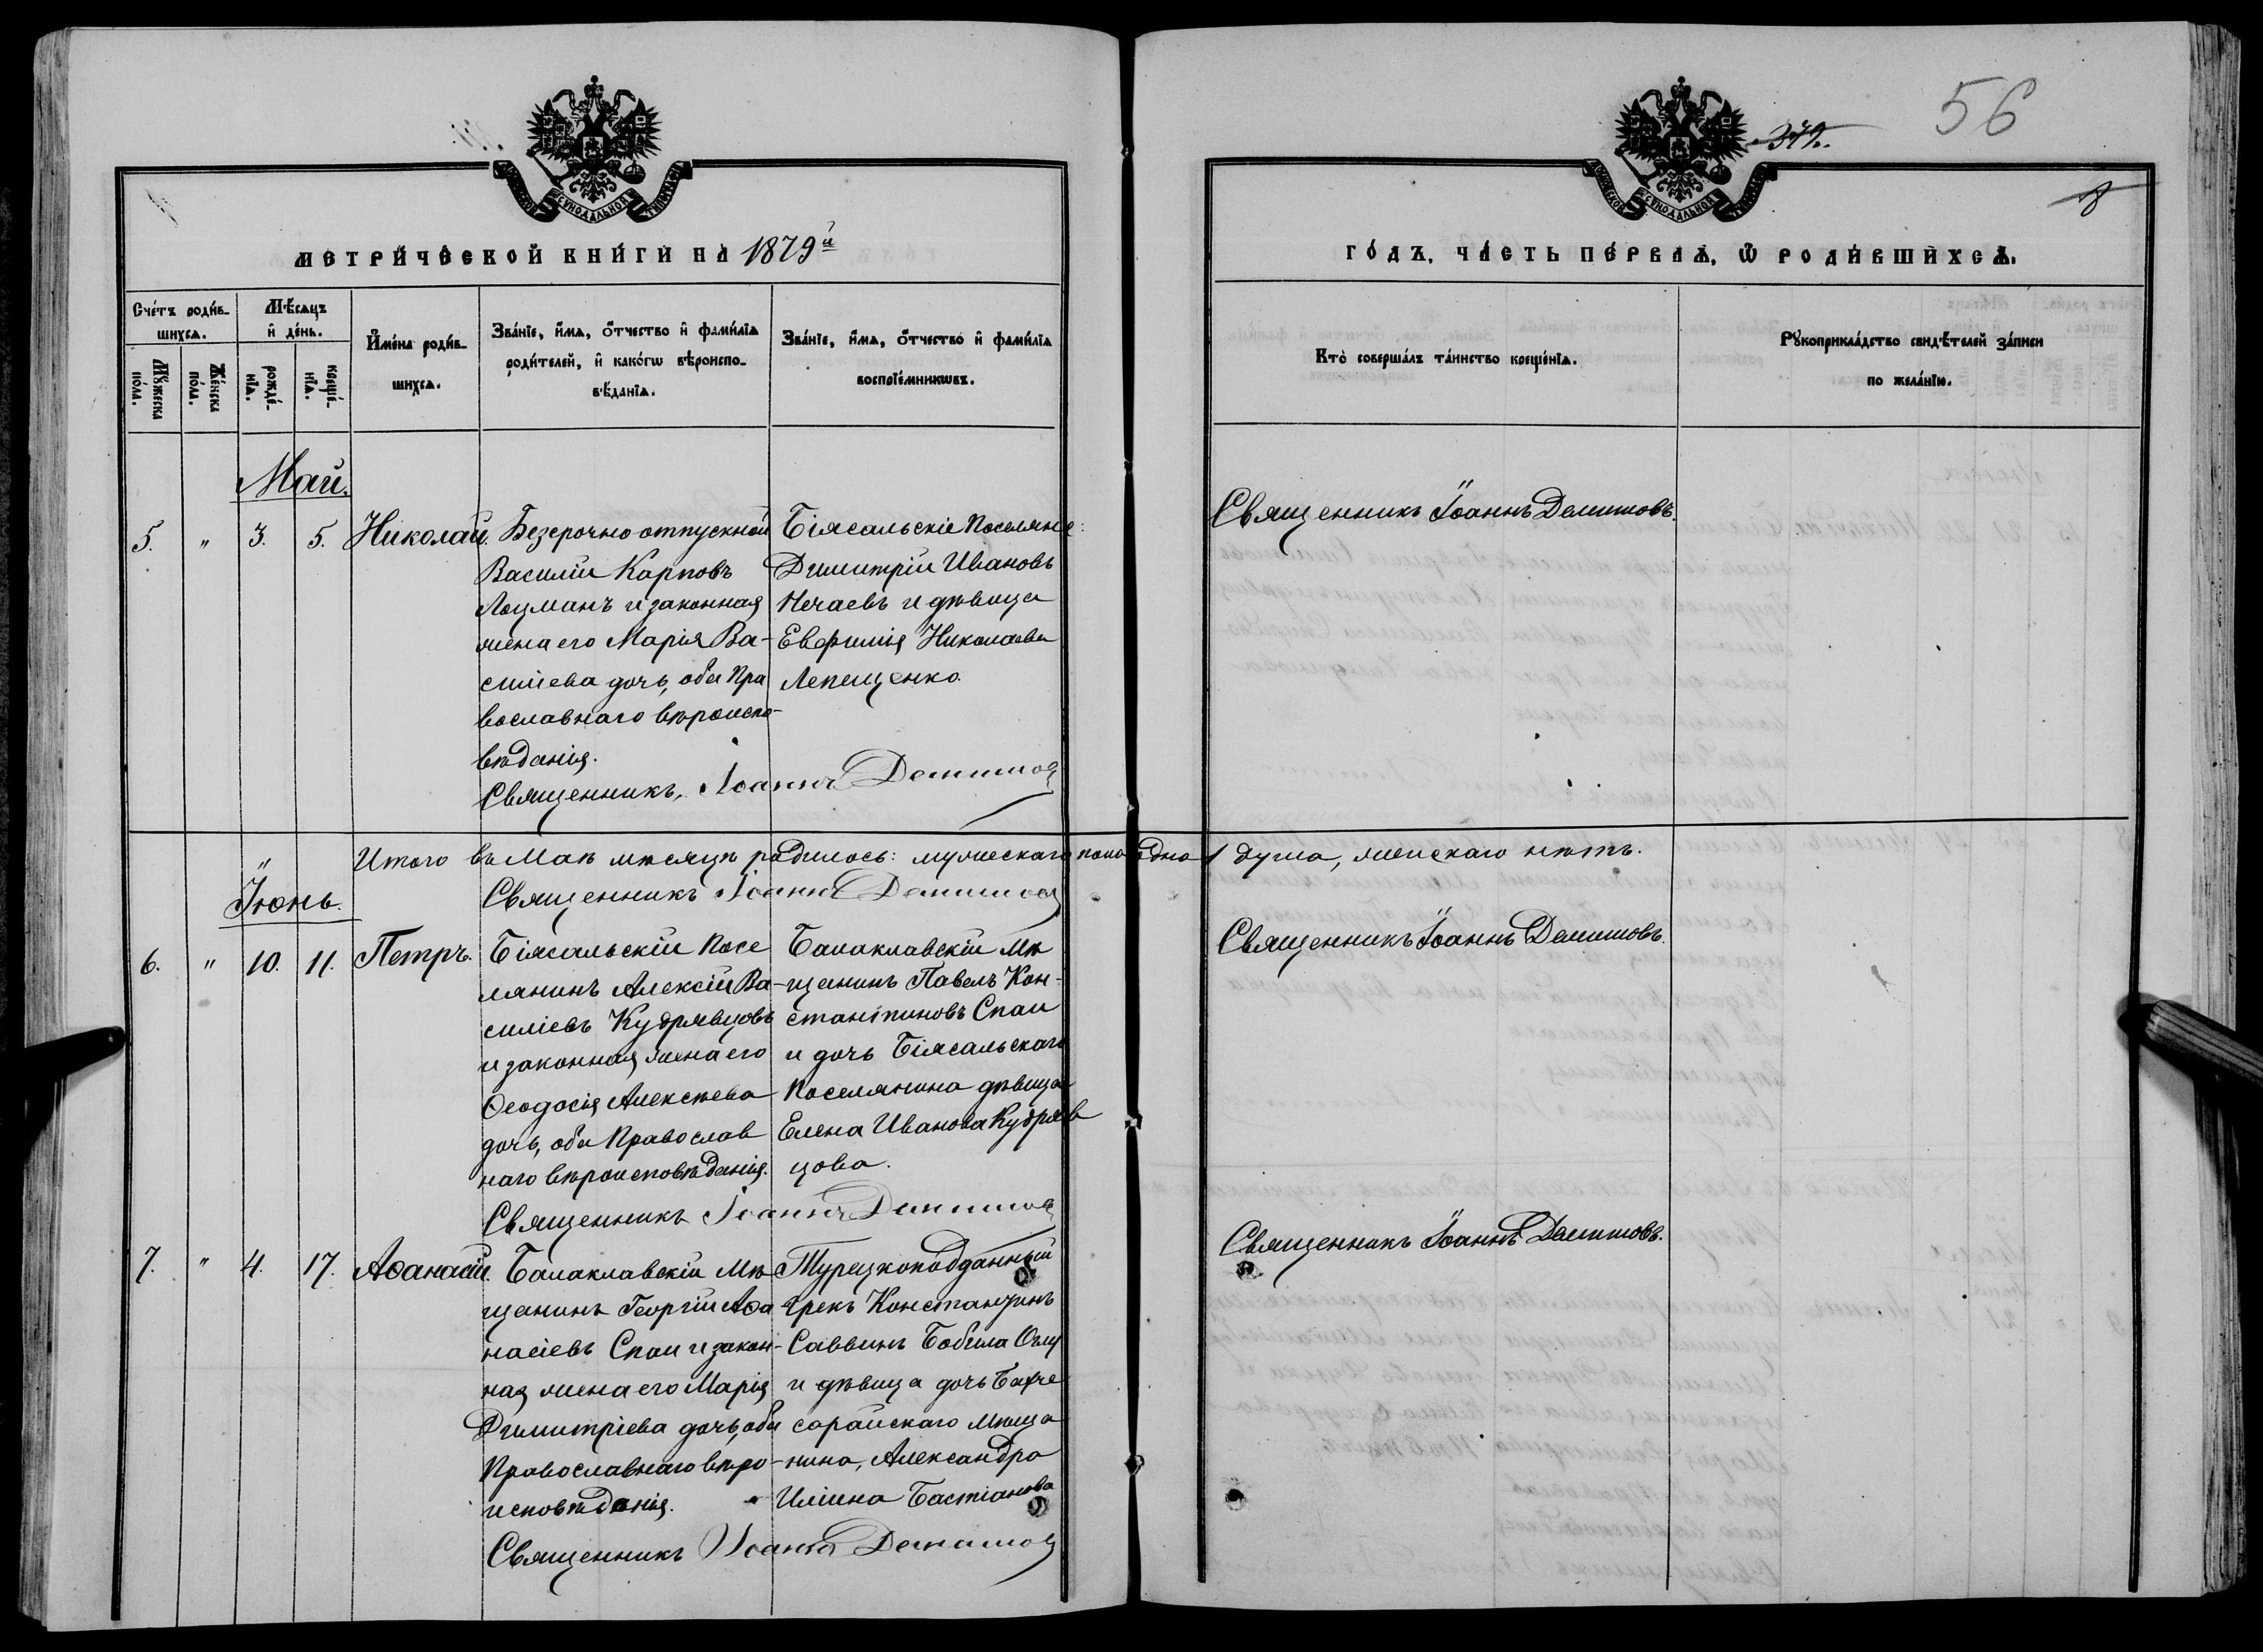 379.
56
8
МОСКОВСКОЙ СУНОДАЛЬНОЙ ТИПОГРАФІИ
МОСКОВСКОЙ СУНОДАЛЬНОЙ ТИПОГРАФІИ
МЕТРИ́ЧЕСКОЙ КНИ́ГИ НА 1879й
ГО́ДЪ, ЧА́СТЬ ПЕ́РВАѦ, Ѿ РОДИ́ВШИХСѦ.
Сче́тъ роди́в-
шихсѧ.
Мꙋ́жеска
по́ла.
Же́нска
по́ла.
Мѣ́сѧцъ
и҆ де́нь.
рожде́-
нїѧ.
креще́-
нїѧ.
И҆мена̀ роди́в-
шихсѧ.
Зва́нїе, и҆́мѧ, ѻ҆́тчество и҆ фами́лїѧ
роди́телей, и҆ како́гѡ вѣроиспо-
вѣ́данїѧ.
Зва́нїе, и҆́мѧ, ѻ҆́тчество и҆ фами́лїѧ
воспрїе́мникѡвъ.
Кто̀ соверша́лъ та́инство креще́нїѧ.
Рꙋкоприкла́дство свидѣ́телей за́писи
по жела́нїю.
Май.
5. " 3. 5. Николай.
Безсрочно отпускной
Василій Карповъ
Лоцманъ и законная
жена его Марія Ва-
силіева дочь, оба Пра
вославнаго вѣроиспо-
вѣданія.
Священникъ, Іоаннъ Демишов
Біясальскіе Поселяне:
Димитрій Ивановъ
Нечаевъ и дѣвица
Евфимія Николаева
Лепещенко.
Священникъ Іоаннъ Демишовъ.
Итого въ Маѣ мѣсяцѣ родилось: мужескаго пола одна 1 душа, женскаго нѣтъ.
Священникъ Іоаннъ Демишов
"
Іюнь.
6. " 10. 11. Петръ.
Біясальскій Посе
лянинъ Алексій Ва-
силіевъ Кудрявцовъ
и законная жена его
Ѳеодосія Алексѣева
дочь, оба Православ
наго вѣроисповѣданія.
Священникъ Іоаннъ Демишов
Балаклавскій Мѣ
щанинъ Павелъ Кон-
стантиновъ Спаи
и дочь Біясальскаго
Поселянина дѣвица
Елена Иванова Кудряв
цова.
Священникъ Іоаннъ Демишовъ.
7. " 4. 17. Аѳанасій.
Балаклавскій Мѣ
щанинъ Георгій Аѳа
насіевъ Спаи и закон-
ная жена его Марія
Димитріева дочь, оба
Православнаго вѣро-
исповѣданія.
Священникъ Іоаннъ Демишов
Турецкоподданный
грекъ Константинъ
Саввинъ Оглу
и дѣвица дочь Бахче
сарайскаго Мѣща
нина, Александра
Иліина Бастіанова
Священникъ Іоаннъ Демишовъ.